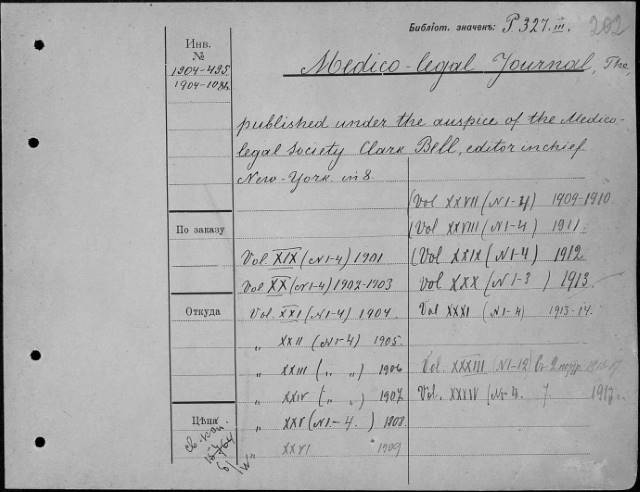 Библіот. значекъ: P 327. III. 202
Инв.
№
1904-495.
1904-
Medico-legal Journal, The,
published under the auspice of the Medico-
legal Society Clark Bell, editor in chief
New-York. in 8.
По заказу
Откуда
Цѣна
Vol XIX (N 1-4) 1901
Vol XX (N 1-4) 1902-1903
Vol. XXI (N 1-4) 1904.
„ XXII (N 1-4) 1905.
„ XXIII („ „) 1906
„ XXIV („ „) 1907
„ XXV (N 1-4.) 1908.
„ XXVI 1909
(Vol XXVII (N 1-4) 1909-1910
(Vol XXVIII (N 1-4) 1911.
(Vol XXIX (N 1-4) 1912
Vol XXX (N 1-3) 1913
Vol XXXI (N 1-4) 1913-14.
Vol. XXXIII (N 1-12)
Vol. XXXIV (N 1-4.